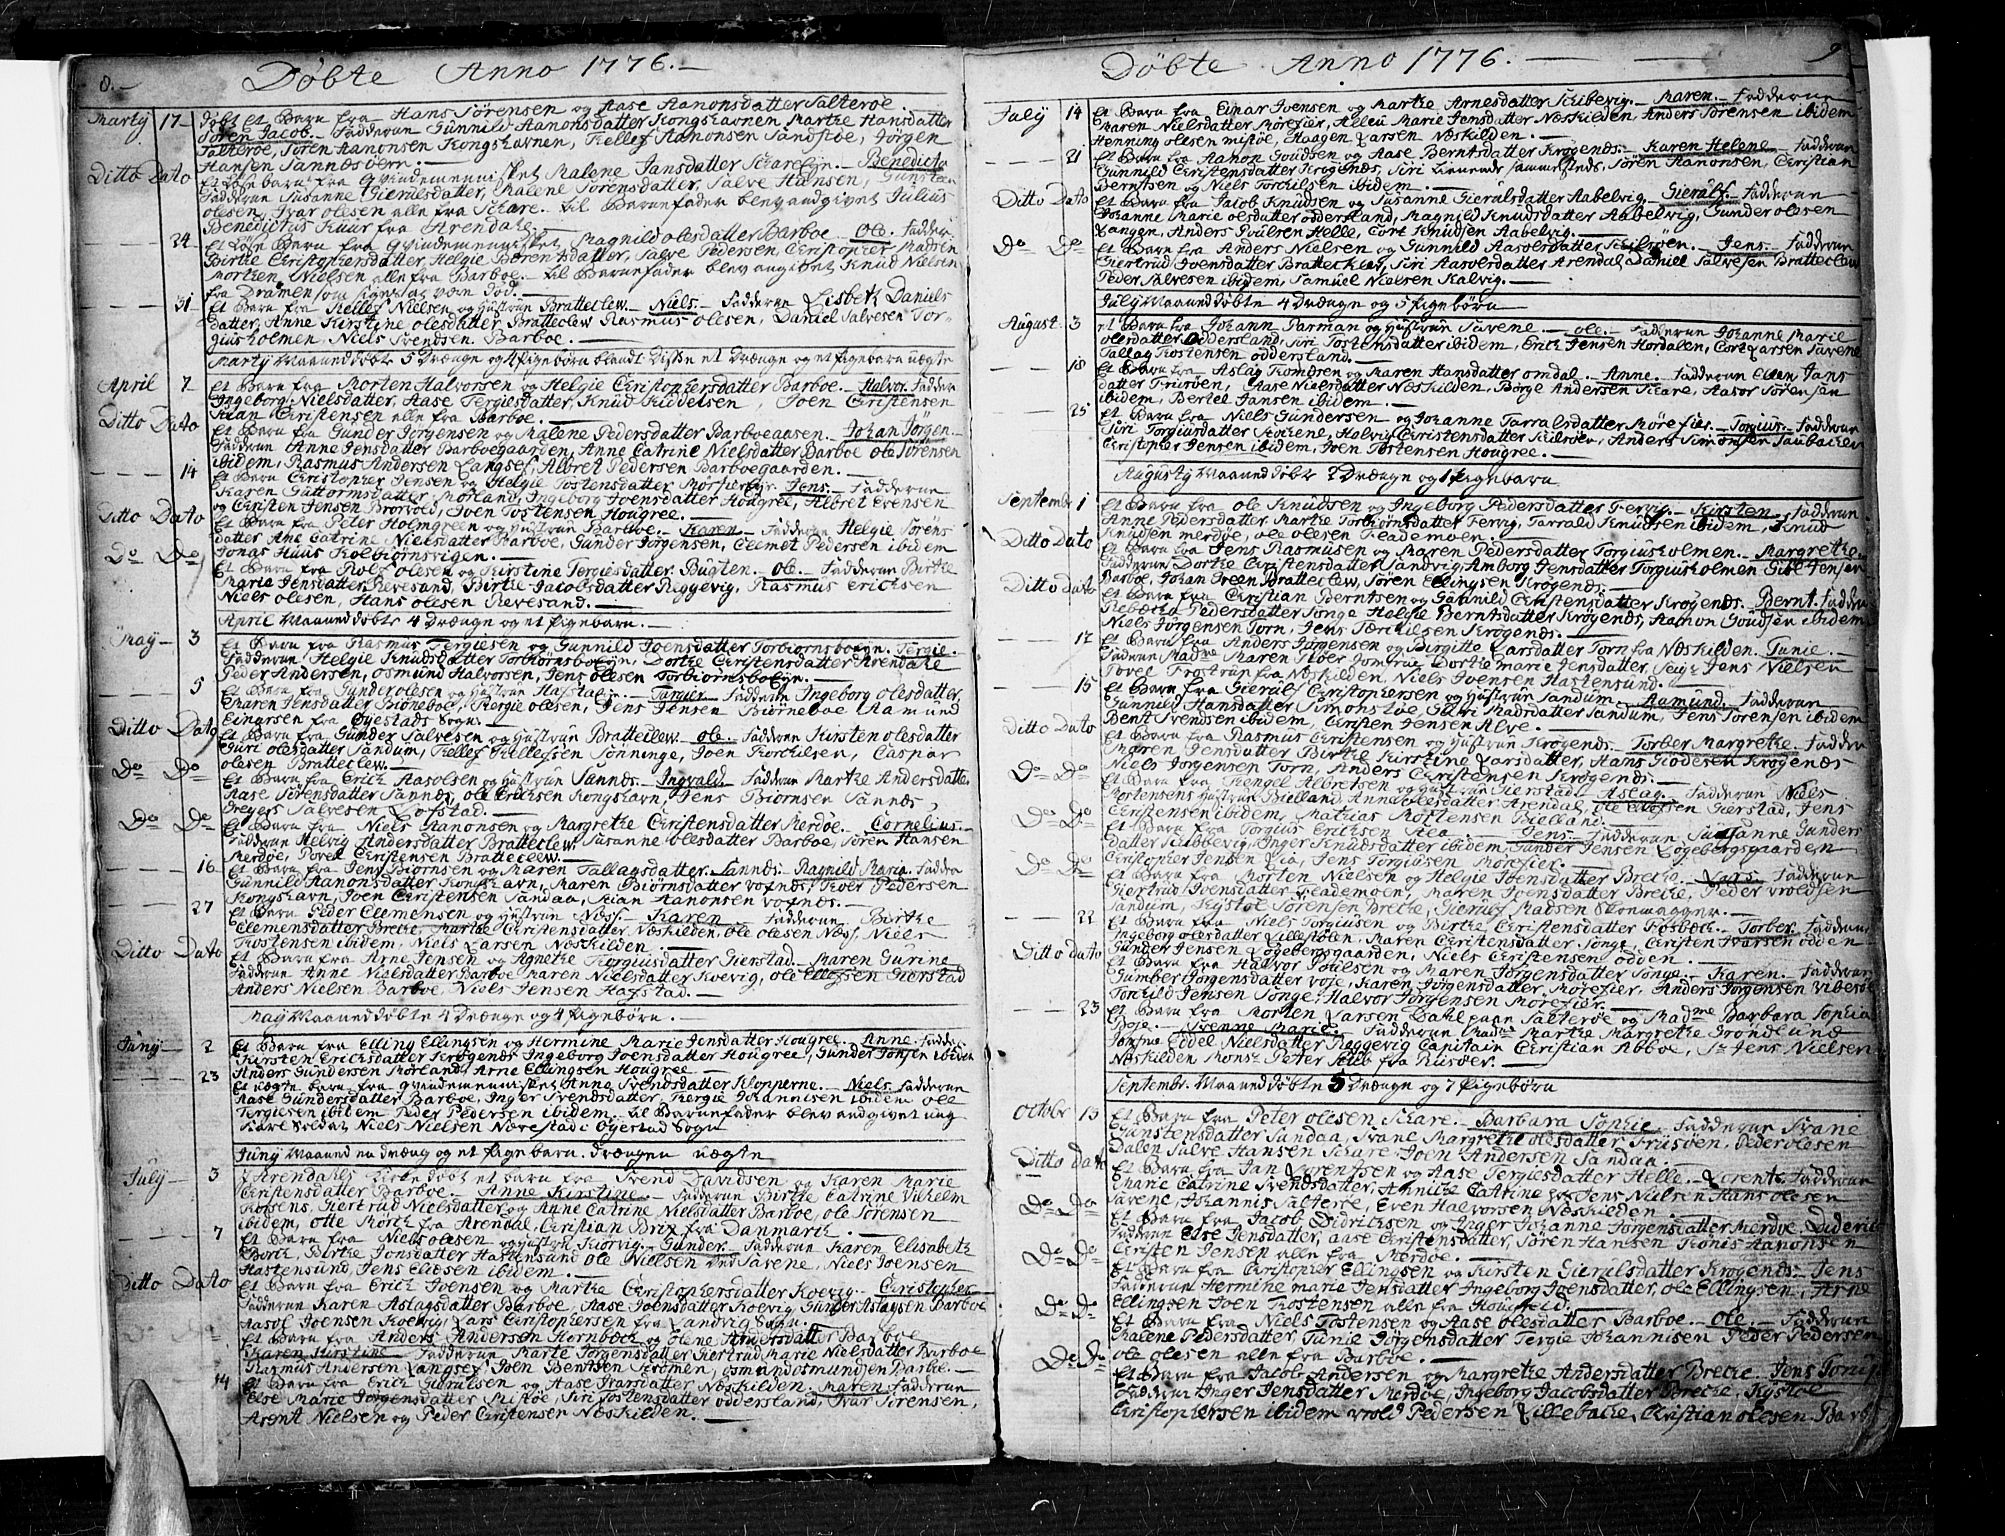 8.
Döbte Anno 1776.
Marty 17 döbt et Barn fra Hans Sörensen og Aase Aanonsdatter Salteröe.
Sören Jacob. Fadderne Gunnild Aanonsdatter Kongshavnen Marthe Hansdatter
Salteröe, Sören Aanonsen Kongshavnen, Kellef Aanonsen Sandstöe, Jörgen
Hansen Sannesveen.
Ditto Dato Et Barn fra Qvindemennisket Malene Jansdatter Benedicto
Fadderne Susanne Gierulsdatter, Malene Sörensdatter, Salve Hansen, Gunsteen
olesen, Ivar olesen alle fra Schare. til Barnefader blev angivet Julius
Benedictus Kuur fra Arendahl.
24 et Barn fra Qvindemennisket Magnild olesdatter Barboe. Ole. Fadder
Birthe Christophersdatter, Helgie Börentsdatter, Salve Pedersen Christopher Madsen
Morthen Nielsen alle fra Barboe. til Barnefader blev angivet Knud Nielsen
31 Et Barn fra Kellef Nielsen og Hustrun Bratteclew. Niels. Fadderun Lisbeth Daniels
datter, Anne Kirstine olesdatter Bratteclew Rasmus olesen, Daniel Salvesen Tor-
giusholmen, Niels Svendsen Barboe.
Marty Maaned döbte 5 Drænge og 4 Pigebörn blandt disse et Drænge og et Pigebarn uægte
April 7 Et Barn fra Morten Halvorsen og Helgie Christophersdatter Barboe. Halvor. Fadder
Ingeborg Nielsdatter, Aase Tergiesdatter, Knud Kiddelsen, Joen Christensen
Kian Christensen alle fra Barboe.
Ditto Dato Et Barn fra Gunder Jörgensen og Malene Pedersdatter Barboeaasen. Johan Jörgen.
Fadderun Anne Jensdatter Barboegaarden, Anne Catrine Nielsdatter Barboe ole Sörensen
ibidem, Rasmus Andersen Langsef, Albret Pedersen Barboegaarden.
14 Et Barn Christopher Jensen og Helgie Tostensdatter Jens. Fadderun
Karen Guttormsdatter Morland, Ingeborg Joensdatter Hougree, Albret Evensen
og Christen Jensen Joen Tostensen Hougree.
Ditto Dato Et Barn fra Peter Holmgreen og Hustrun Barboe. Karen. Fadderne Helgie Sörens
datter Ane Catrine Nielsdatter Barboe, Gunder Jörgensen, Clemet Pedersen ibidem
Jonas Huus Kolbiörnsvigen.
Do Do Et Barn fra Rolf olesen og Kirstine Tergiesdatter. Bugten. ole. Fadderun Birthe
Marie Jensdatter Revesand, Birthe Jacobsdatter Reggevig, Rasmus Erichsen
Niels olesen, Hans olesen Revesand.
April Maaned döbte 4 Drænge og et Pigebarn.
May 3 Et Barn fra Rasmus Tergiesen og Gunnild Joensdatter Torbiornsboeyn. Tergie.
Fadderun Helgie Knudsdatter Torbiornsboeyn, Dorthe Christensdatter Arendahl
Peder Andersen, osmund Halvorsen, Jens olesen Torbiornsboeyn.
5 Et Barn fra Gunder olesen og Hustrun Hafstad. Torgier. Fadderun Ingeborg olesdatter
Karen Jensdatter Biöneboe, Tergie olesen, Jens Jensen Biörneboe Aamund
Einarsen fra Öyestads Sogn.
Ditto Dato Et Barn fra Gunder Salvesen og Hustrun Bratteclew. ole. Fadderun Kirsten olesdatter
Guri olesdatter Sandum, Kellef Kellefsen Sönninge, Joen Torkilsen, Caspar
olesen Bratteclew.
Do Do Et Barn fra Erich Aasolsen og Hustrun Sannes. Ingvald. Fadderun Marthe Andersdatter
Aase Sörensdatter Sannes, ole Erichsen Kongshavn, Jens Biörnsen Sannes,
Greyers Salvesen Lofstad.
Do Do Et Barn fra Niels Aanonsen og Margrethe Christensdatter Merdöe. Cornelius.
Fadderun Helvig Andersdatter Bratteclew, Susanne olesdatter Barboe, Sören Hansen
Merdöe, Povel Christensen Bratteclew.
16 Et Barn fra Jens Biörnsen og Maren Tallagsdatter Sannes. Ragnild Maria. Fadde
Gunnild Aanonsdatter Kongshavn, Maren Biörnsdatter vofnes, Peder Pedersen
Kongshavn, Joen Christensen Sandaa, Kian Aanonsen vofnes.
27 Et Barn Peder Clemensen og Hustrun Næs. Karen. Fadderun Birthe
Clemensdatter Breche, Marthe Christensdatter Næskilden, ole olesen Næss, Niels
Tostensen ibidem, Niels Larsen Næskilden.
Ditto Dato Et Barn fra Arne Jensen og Agnethe Torgiusdatter Gierstad. Maren Gurine
Fadderun Anne Nielsdatter Barboe Karen Nielsdatter Koevig, ole Ellefsen Gierstad
Anders Nielsen Barboe, Niels Jensen Hafstad.
May Maaned döbte 4 Drænge og 4 Pigebörn.
Juny 2 Et Barn fra Elling Ellingsen og Hermine Marie Jensdatter Hougree. Anne. Fadder
Kirsten Erichsdatter Krögenes Ingeborg Joensdatter Hougree, Gunder Jonsen ibidem
Anders Gundersen Morland, Arne Ellingsen Hougree.
23 Et uægte barn fra Qvindemennisket Anne Svendsdatter Klopperne. Niels. Fadderun
Aase Gundersdatter Barboe, Inger Svendsdatter, Tergie Johannisen ibidem ole
Tergiesen ibidem Peder Pedersen ibidem. til Barnefader blev angivet ung
Karl Soldat Niels Nielsen Nærestad i Öyestad Sogn
Juny Maaned en dræng og et Pigebarn. drængen uægte
July 3 I Arendahls Kirke döbt et barn fra Svend Davidsen og Karen Marie
Christensdatter Barboe. Anne Kirstine. Fadderun Birthe Catrine Vilhelm
Korsens, Giertrud Nielsdatter og Anne Catrine Nielsdatter Barboe, ole Sörensen
ibidem, otte Mörch fra Arendal, Christian Brix fra Danmarck.
7 Et Barn fra Niels olesen og Hustrun Kiörvig. Gunder. Fadderun Karen Elisabeth
Borch, Birthe Jonsdatter Hastensund ole Nielsen Sasene, Niels Joensen
Hastensund Jens Eliesen ibidem.
Ditto Dato Et Barn fra Erich Joensen og Marthe Christophersdatter Koevig. Christopher
Fadderun Karen Aslagsdatter Barboe, Aase Joensdatter Koevig Gunder Aslagsen Barboe
Aasol Joensen Koevig, Lars Christophersen fra Landvig Sogn.
Et Barn fra Anders Andersen Hornbech og Helene Andersdatter Barboe
Karen Kirstine. Fadderun Marte Jörgensdatter Giertrud Marie Nielsdatter Barboe
Rasmus Andersen Langsef Joen Bentsen osmund osmundsen Barboe.
14 Et Barn fra Erich Gierulsen og Aase Ivarsdatter Næskilden. Maren. Fadderun
Else Marie Jörgensdatter Mistöe, Siri Tostensdatter oddersland, Ivar Sörensen,
Arent Nielsen og Peder Christensen Næskilden.
9
Döbte Anno 1776.
July 14 Et Barn fra Einar Joensen og Marthe Arnesdatter Schibevig. Maren. Fadderun
Maren Nielsdatter Morefier, Aslau Marie Jensdatter Næskilden Anders Sörensen ibidem
Henning olesen mistöe, Haagen Larsen Næskilden.
21 Et Barn fra Aanon Goudsen og Aase Berntsdatter Krögenes. Karen Helene. Fadderun
Gunnild Christensdatter Krögenes, Siri sammesteds, Sören Aanonsen, Christian
Berntsen og Niels Torkilsen ibidem.
Ditto Dato Et Barn fra Jacob Knudsen og Susanne Gierulsdatter Aabelvig. Gierulf. Fadderun
Johanne Marie olesdatter oddersland, Magnild Knudsdatter Aabelvig, Gunder olesen
Langen, Anders Poulsen Helle, Cort Knudsen Aabelvig.
Do Do Et Barn fra Anders Nielsen og Gunnild Aasolesdatter Schilsöen. Jens. Fadderun
Giertrud Joensdatter Bratteclew, Siri Aasolesdatter Arendal, Daniel Salvesen Bratteclew
Peder Salvesen ibidem, Samuel Nielsen Kalvig.
July Maaned döbte 4 Drænge og 5 Pigebörn
August 3 et Barn fra Johann Parman og Hustrun Savene. ole. Fadderun Johanne Marie
olesdatter Oddersland, Siri Tostensdatter ibidem, Erich Jensen Hordalen, Cort Larsen Savene
Tallag Tostensen oddersland.
18 Et Barn fra Aslag Tomdsen og Maren Hansdatter omdal. Anne. Fadderun Ellen Jans
datter Trusöen, Aase Nielsdatter Næskilden, Börge Andersen Schare, Aasor Sörensen
ibidem, Bertel Jansen ibidem.
25 Et Barn fra Niels Gundersen og Johanne Tarralsdatter Mörefier. Torgius. Fadderun
Siri Torgiusdatter Hölvig Christensdatter Schilsöen, Anders Simonsen Saubachen
Christopher Jensen ibidem, Joen Tostensen Hougree.
Augusty Maaned döbt 2 Drænge og 1 Pigebarn
Septembr 1 Et Barn fra ole Knudsen og Ingeborg Pedersdatter Fervig. Kirsten. Fadderun
Anne Pedersdatter Marthe Torbiornsdatter Fervig, Tarrald Knudsen ibidem, Knud
Knudsen merdöe, ole olesen Fleademoen.
Ditto Dato Et Barn fra Jens Rasmusen og Maren Pedersdatter Torgiusholmen. Margrethe.
Fadderun Dorthe Christensdatter Sandvig, Amborg Jensdatter Torgiusholmen Gisle Jensen
Barboe, Johan Green Bratteclew, Sören Ellingsen Krögenes.
Ditto dato Et Barn fra Christian Berntsen og Gunnild Christensdatter Krögenes. Bernt. Fadder
Rebecha Pedersdatter Songe Helche Berntsdatter Krögenes, Aanon Goudsen ibidem
Niels Jörgensen Torn, Jens Torchilsen Krögenes.
12 Et Barn fra Anders Jörgensen og Birgitte Larsdatter Torn fra Næskilden. Tunie.
Fadderun Madme Maren Dorthe marie Jensdatter, Jens Nielsen
Povel Frostrup fra Næskilden, Niels Joensen Hastensund.
15 Et Barn fra Gierulf Christophersen og Hustrun Sandum. Aamund. Fadderun
Gunnild Hansdatter Simonstöe, Guri Madsdatter Sandum, Jens Sörensen ibidem
Bent Svendsen ibidem, Christen Jensen Alve.
Ditto Dato Et Barn fra Rasmus Christensen og Hustrun Krögenes. Torber Margrethe. Fadder
Maren Jensdatter Birthe Kirstine Larsdatter, Hans Todesen Krögenes
Niels Jörgensen Torn, Anders Christensen Krögenes.
Do Do Et Barn fra Tengel Albretsen og Hustrun Gierstad. Aslag. Fadderun Niels
Mortensens Hustrun Bielland, Anne olesdatter Arendal, ole Ellefsen Gierstad, Jens
Christensen ibidem, Mathias Mortensen Bielland.
Do Do Et Barn fra Torgius Erichsen Jens. Fadderun Susanne Gunders
datter Schibbevig, Inger Knudsdatter ibidem, Gunder Jensen Lögebergsgaarden
Christopher Jensen Lia, Jens Torgiusen Mörefier.
Do Do Et Barn fra Morten Nielsen og Helgie Joensdatter Breche. Lars. Fadderun
Giertrud Joensdatter Fleademoen, Maren Joensdatter Breche, Peder vroldsen
Sandum, Kystoe Sörensen Breche, Gierulf Madsen
22 Et Barn fra Niels Torgiusen og Birthe Christensdatter Fosbech. Torber. Fadderun
Ingeborg olesdatter Lillestölen, Maren Christensdatter Songe, Christen Ivarsen odden
Gunder Jensen Lögebergsgaarden, Niels Christensen odden.
Ditto dato Et Barn fra Halvor Poulsen og Maren Jörgensdatter Songe. Karen. Fadderun
Gumber Jörgensdatter voje, Karen Jörgensdatter Mörefier, Anders Jörgensen vibesöe
Torkild Jensen Songe, Halvor Jörgensen Mörefier.
23 Et Barn fra Morten Larsen Dahl paa Salteröe og Madme Barbara Sophia
Boje. Svenne Marie. Fadderun Madme Marthe Margrethe Gröndlund
Jomfrue Eddel Nielsen Reggevig Capitain Christian Abboe, Sr Jens Nielsen
Næskilden Mons: Peter fra Risöer.
Septembr. Maaned döbte 5 Drænge og 7 Pigebörn
Octobr 13 Et Barn fra Peter olesen Schare. Barbara Sophie. Fadderun Svane
Gunstensdatter Sandaa, Svane Margrethe olesdatter Trusöen, Peder olesen
Dalen Salve Hansen Schare Joen Andersen Sandaa.
Ditto Dato Et Barn fra Jan Lorentsen og Aase Tergiesdatter Helle. Lorents. Fadderun
Marie Catrine Svendsdatter, Anniche Catrine Jens Nielsen Hans olesen
Savene, Johannis Salteröe, Even Halvorsen Næskilden.
Do Do Et Barn fra Jacob Didrichsen og Inger Johanne Jörgensdatter Merdöe. Diderich
Fadderun Else Jensdatter, Aase Christensdatter, Sören Hansen Tönis Aanonsen
Christen Jensen alle fra Merdöe.
Do Do Et Barn fra Christopher Ellingsen og Kirsten Gierulsdatter Krögenes. Jens
Fadderun Hermine marie Jensdatter Ingeborg Joensdatter, ole Ellingsen, Arne
Ellingsen Joen Tostensen alle fra Hougreid.
Do Do Et Barn fra Niels Tostensen og Aase olesdatter Barboe. Ole. Fadderun
Malene Pedersdatter Tunie Jörgensdatter Tergie Johannisen Peder Pedersen
ole olesen alle fra Barboe.
Do Do Et Barn fra Jacob Andersen og Margrethe Andersdatter Breche. Jens Tönis
Fadderun Inger Jensdatter Merdöe, Ingeborg Jacobsdatter Breche, Kystoe
Christophersen ibidem vrold Pedersen Lillebache, Christian olesen Barb